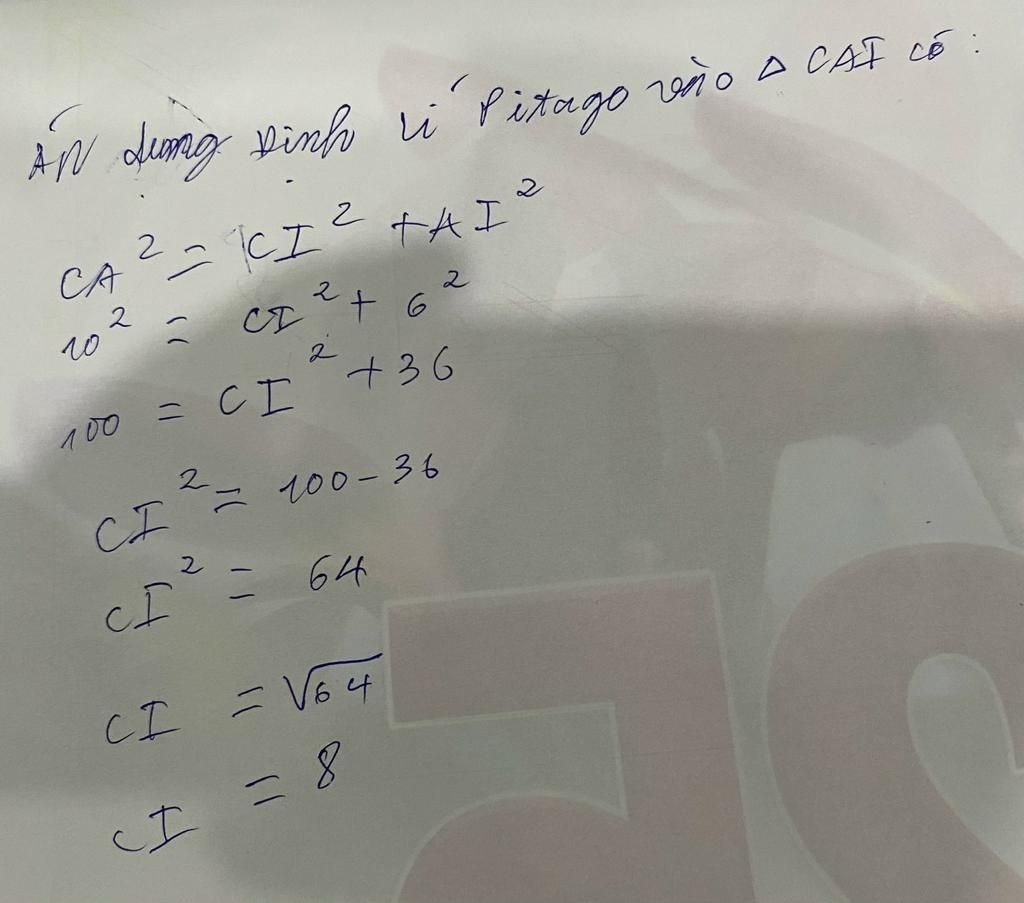 Áp dụng định lí Pitago vào Δ CAI có:
CA² = CI² + AI²
10² = CI² + 6²
100 = CI² + 36
CI² = 100 - 36
CI² = 64
CI = √64
CI = 8